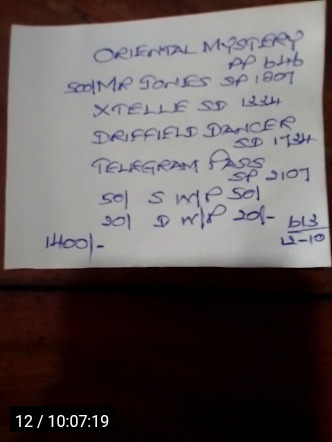 ORIENTAL MYSTERY
PP 646
500/ MR JONES SP 1807
XTELLE SD 1334
DRIFFIELD DANCER
SD 1734
TELEGRAM PASS
SP 2107
50/ S W/P 50/
20/ D W/P 20/-
613
12-10
1400/-
12 / 10:07:19